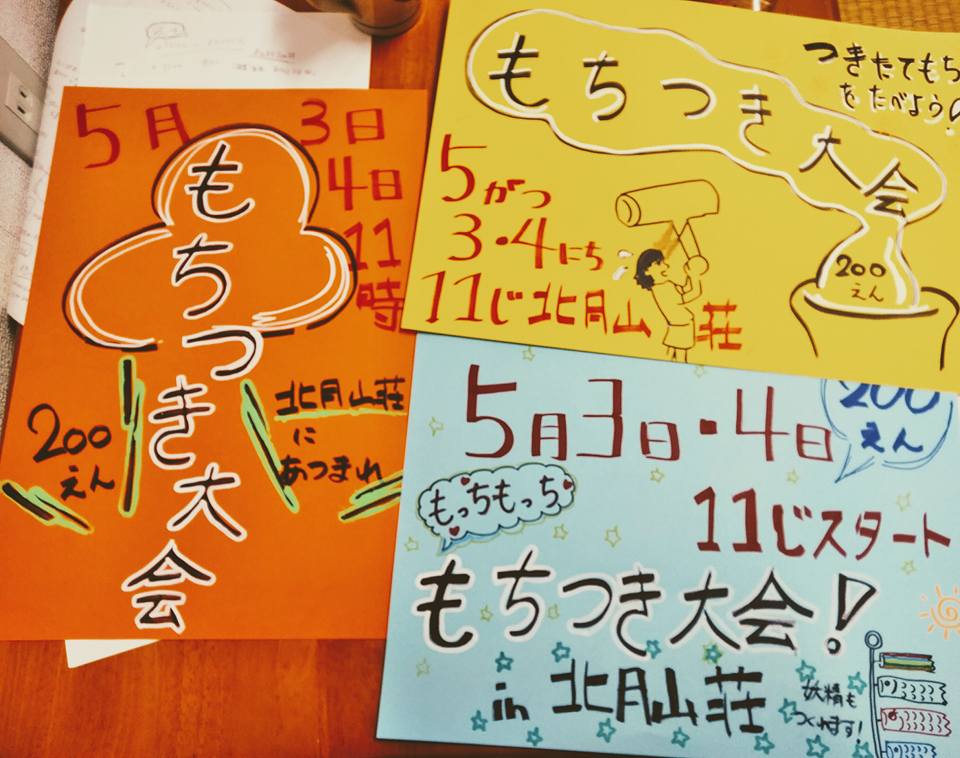 5月 3日
4日
11
時
もちつき大会
200
えん
北月山荘
に
あつまれ
もちつき大会
つきたてもち
をたべよう
5がつ
3・4にち
11じ北月山荘
200
えん
5月3日・4日
200
えん
もっちもっち
11じスタート
もちつき大会!
in 北月山荘
妖精も